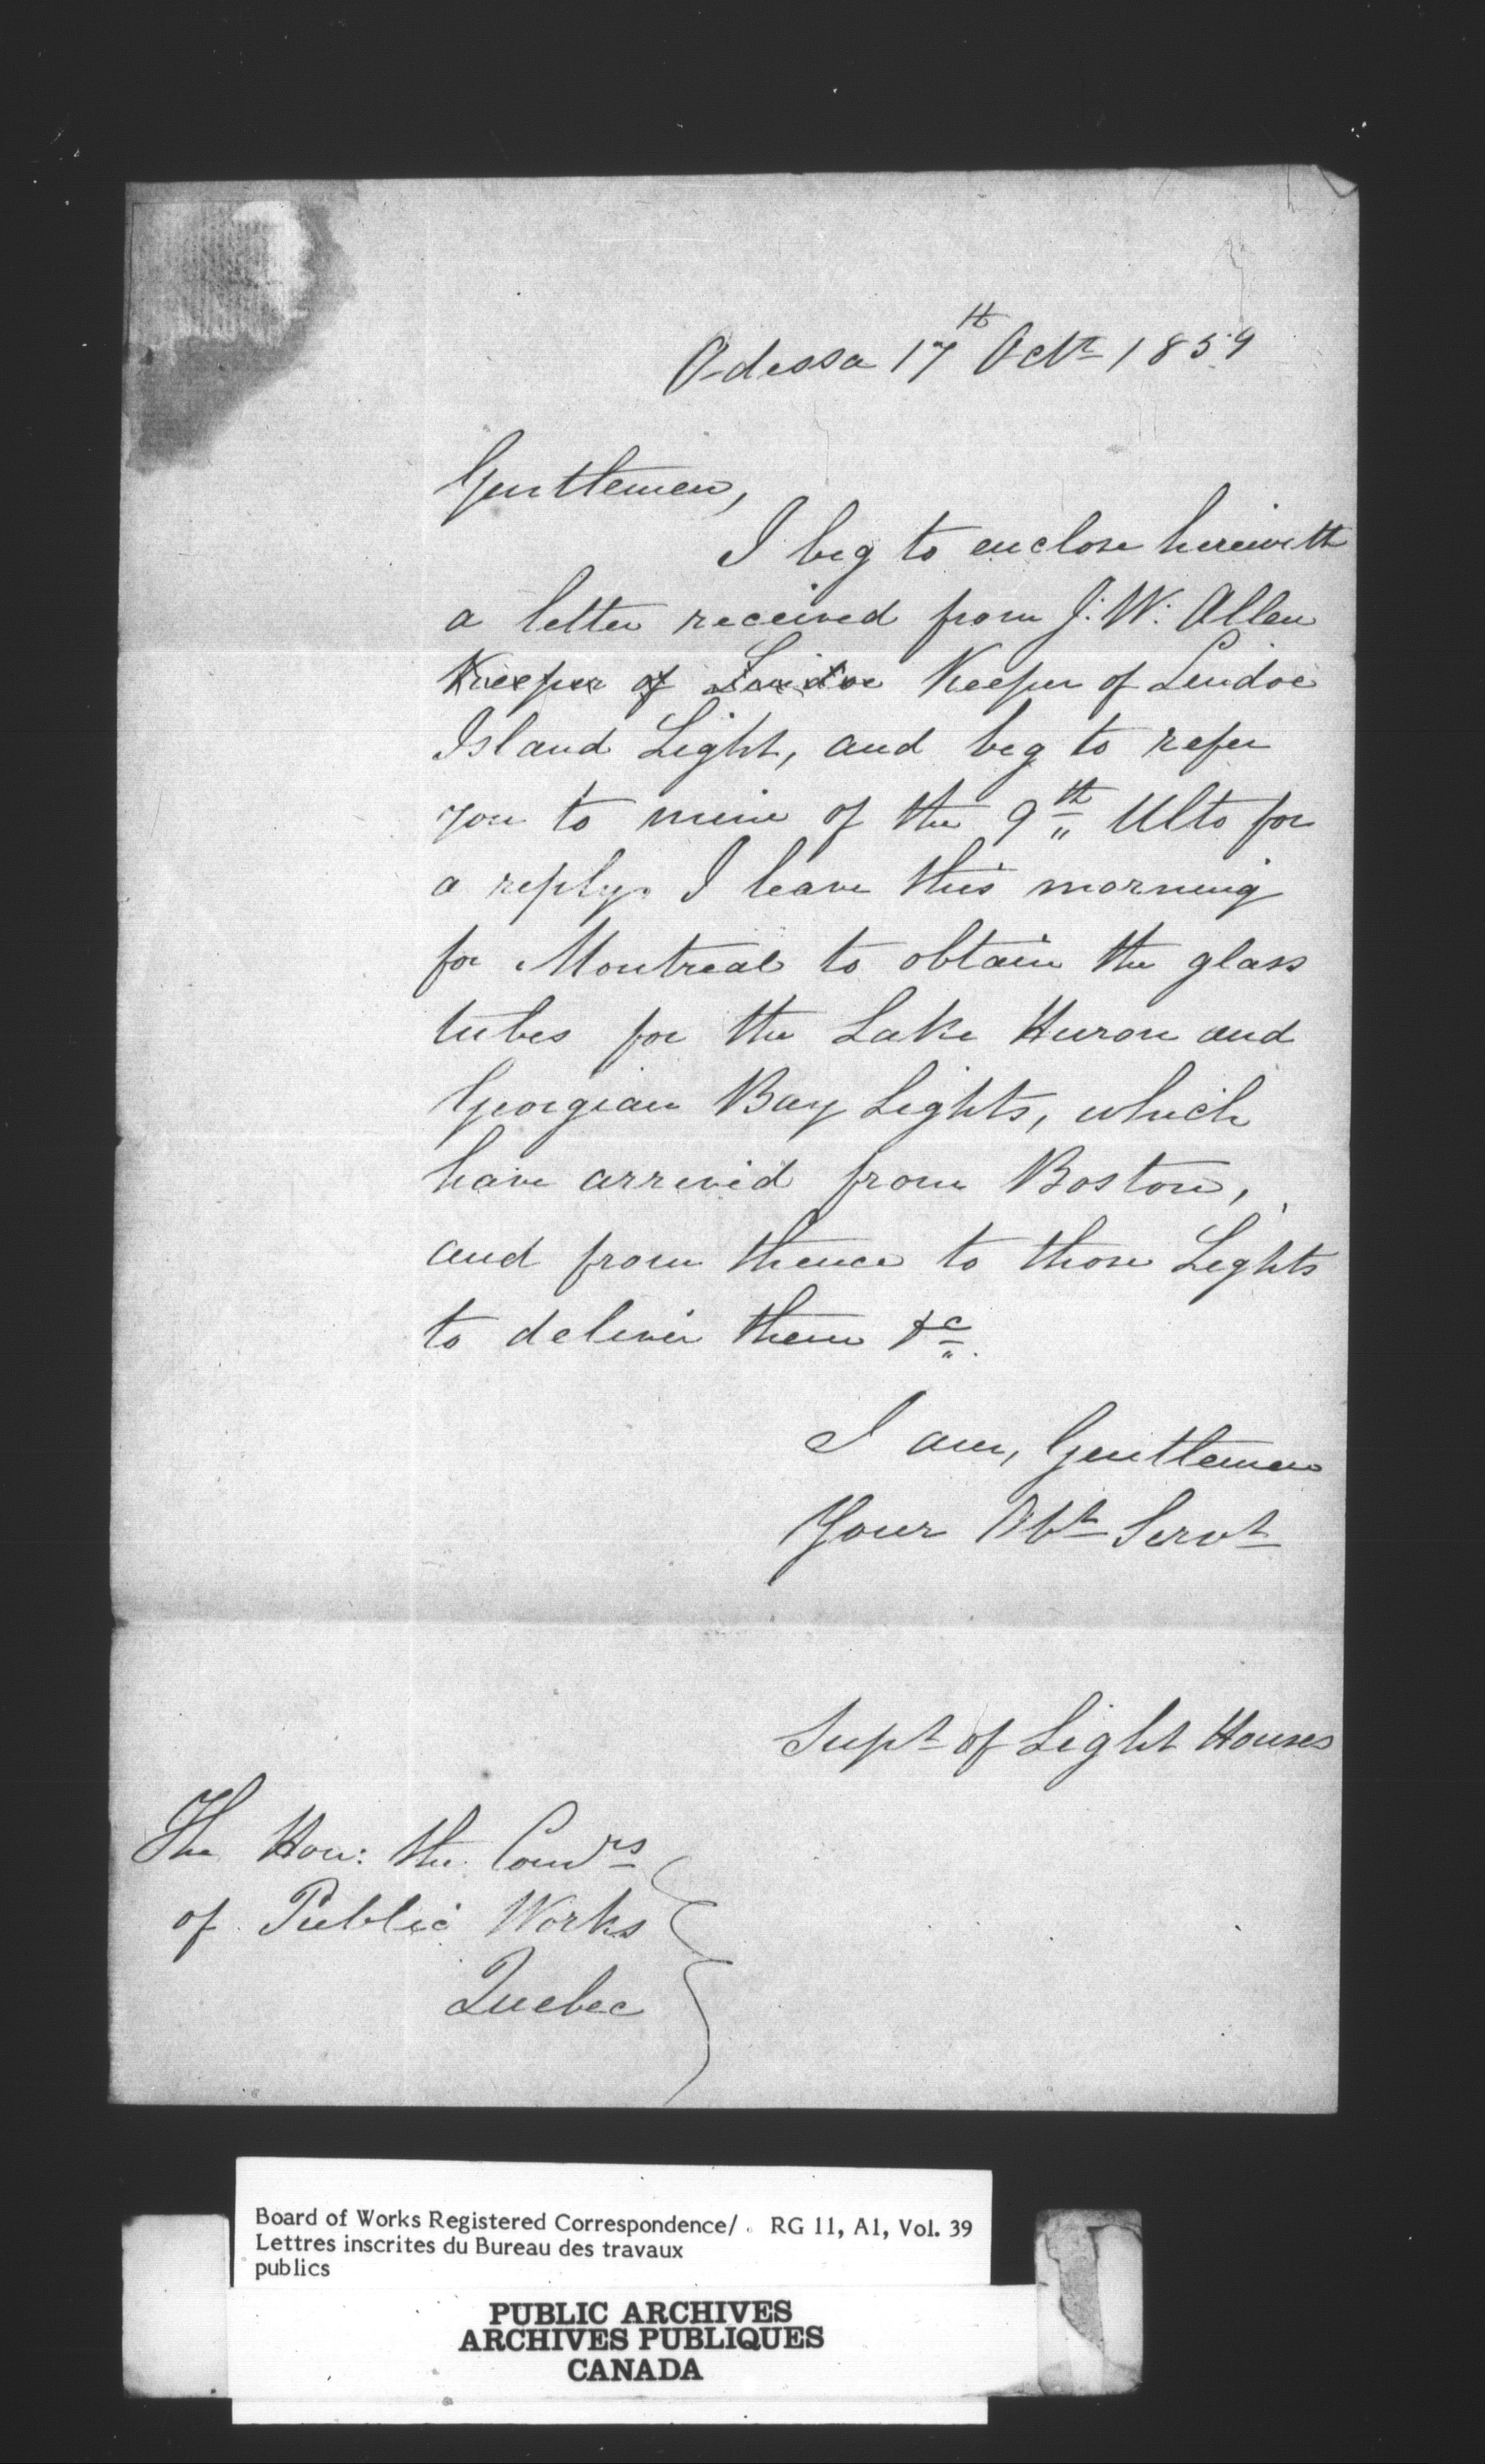 Odessa 17th Octr 1859
Gentlemen,
I beg to enclose herewith
a letter received from J. W. Allen
Keeper of Lindoe Keeper of Lindoe
Island Light, and beg to refer
you to mine of the 9th Ulto for
a reply. I leave this morning
for Montreal to obtain the glass
tubes for the Lake Huron and
Georgian Bay Lights, which
have arrived from Boston,
and from thence to those Lights
to deliver them &c.
I am, Gentlemen
Your Obt Servt
Supt of Light Houses
The Hon: the Comrs
of Public Works
Quebec
Board of Works Registered Correspondence/ RG 11, A1, Vol. 39
Lettres inscrites du Bureau des travaux
publics
PUBLIC ARCHIVES
ARCHIVES PUBLIQUES
CANADA